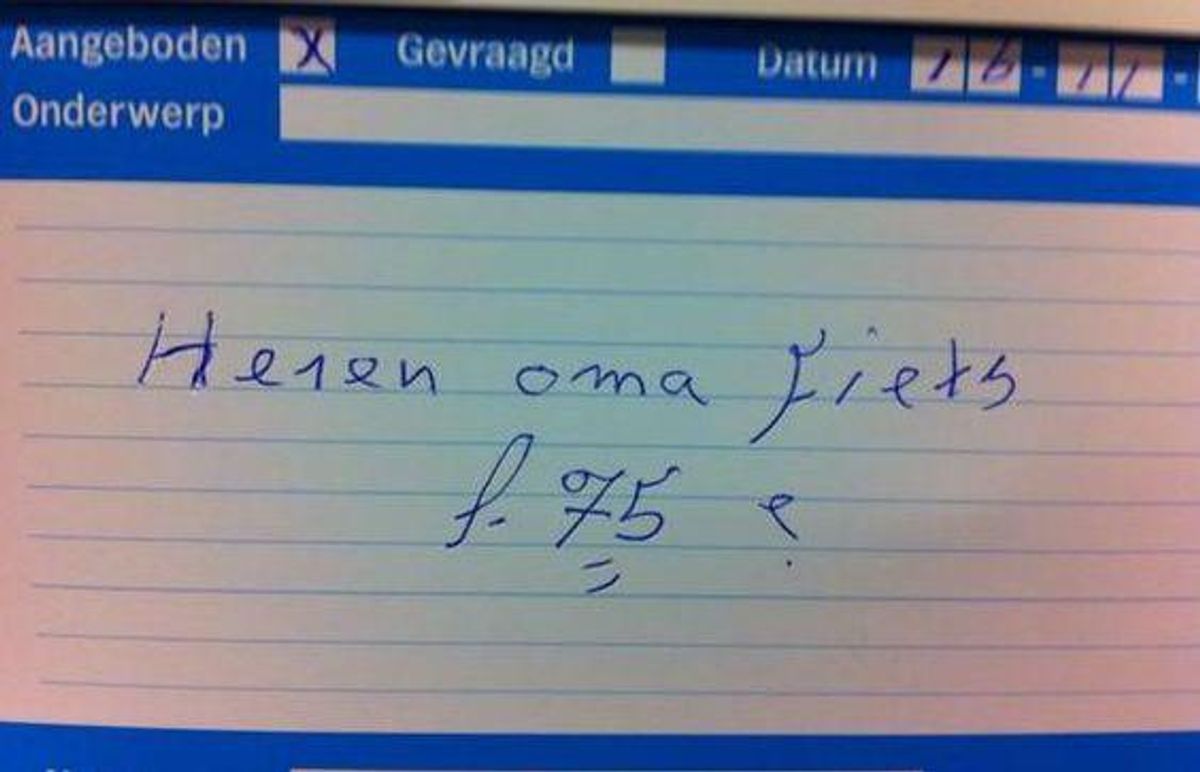 Aangeboden X Gevraagd Datum 16-11-
Onderwerp
Heren oma fiets
f. 75 ?